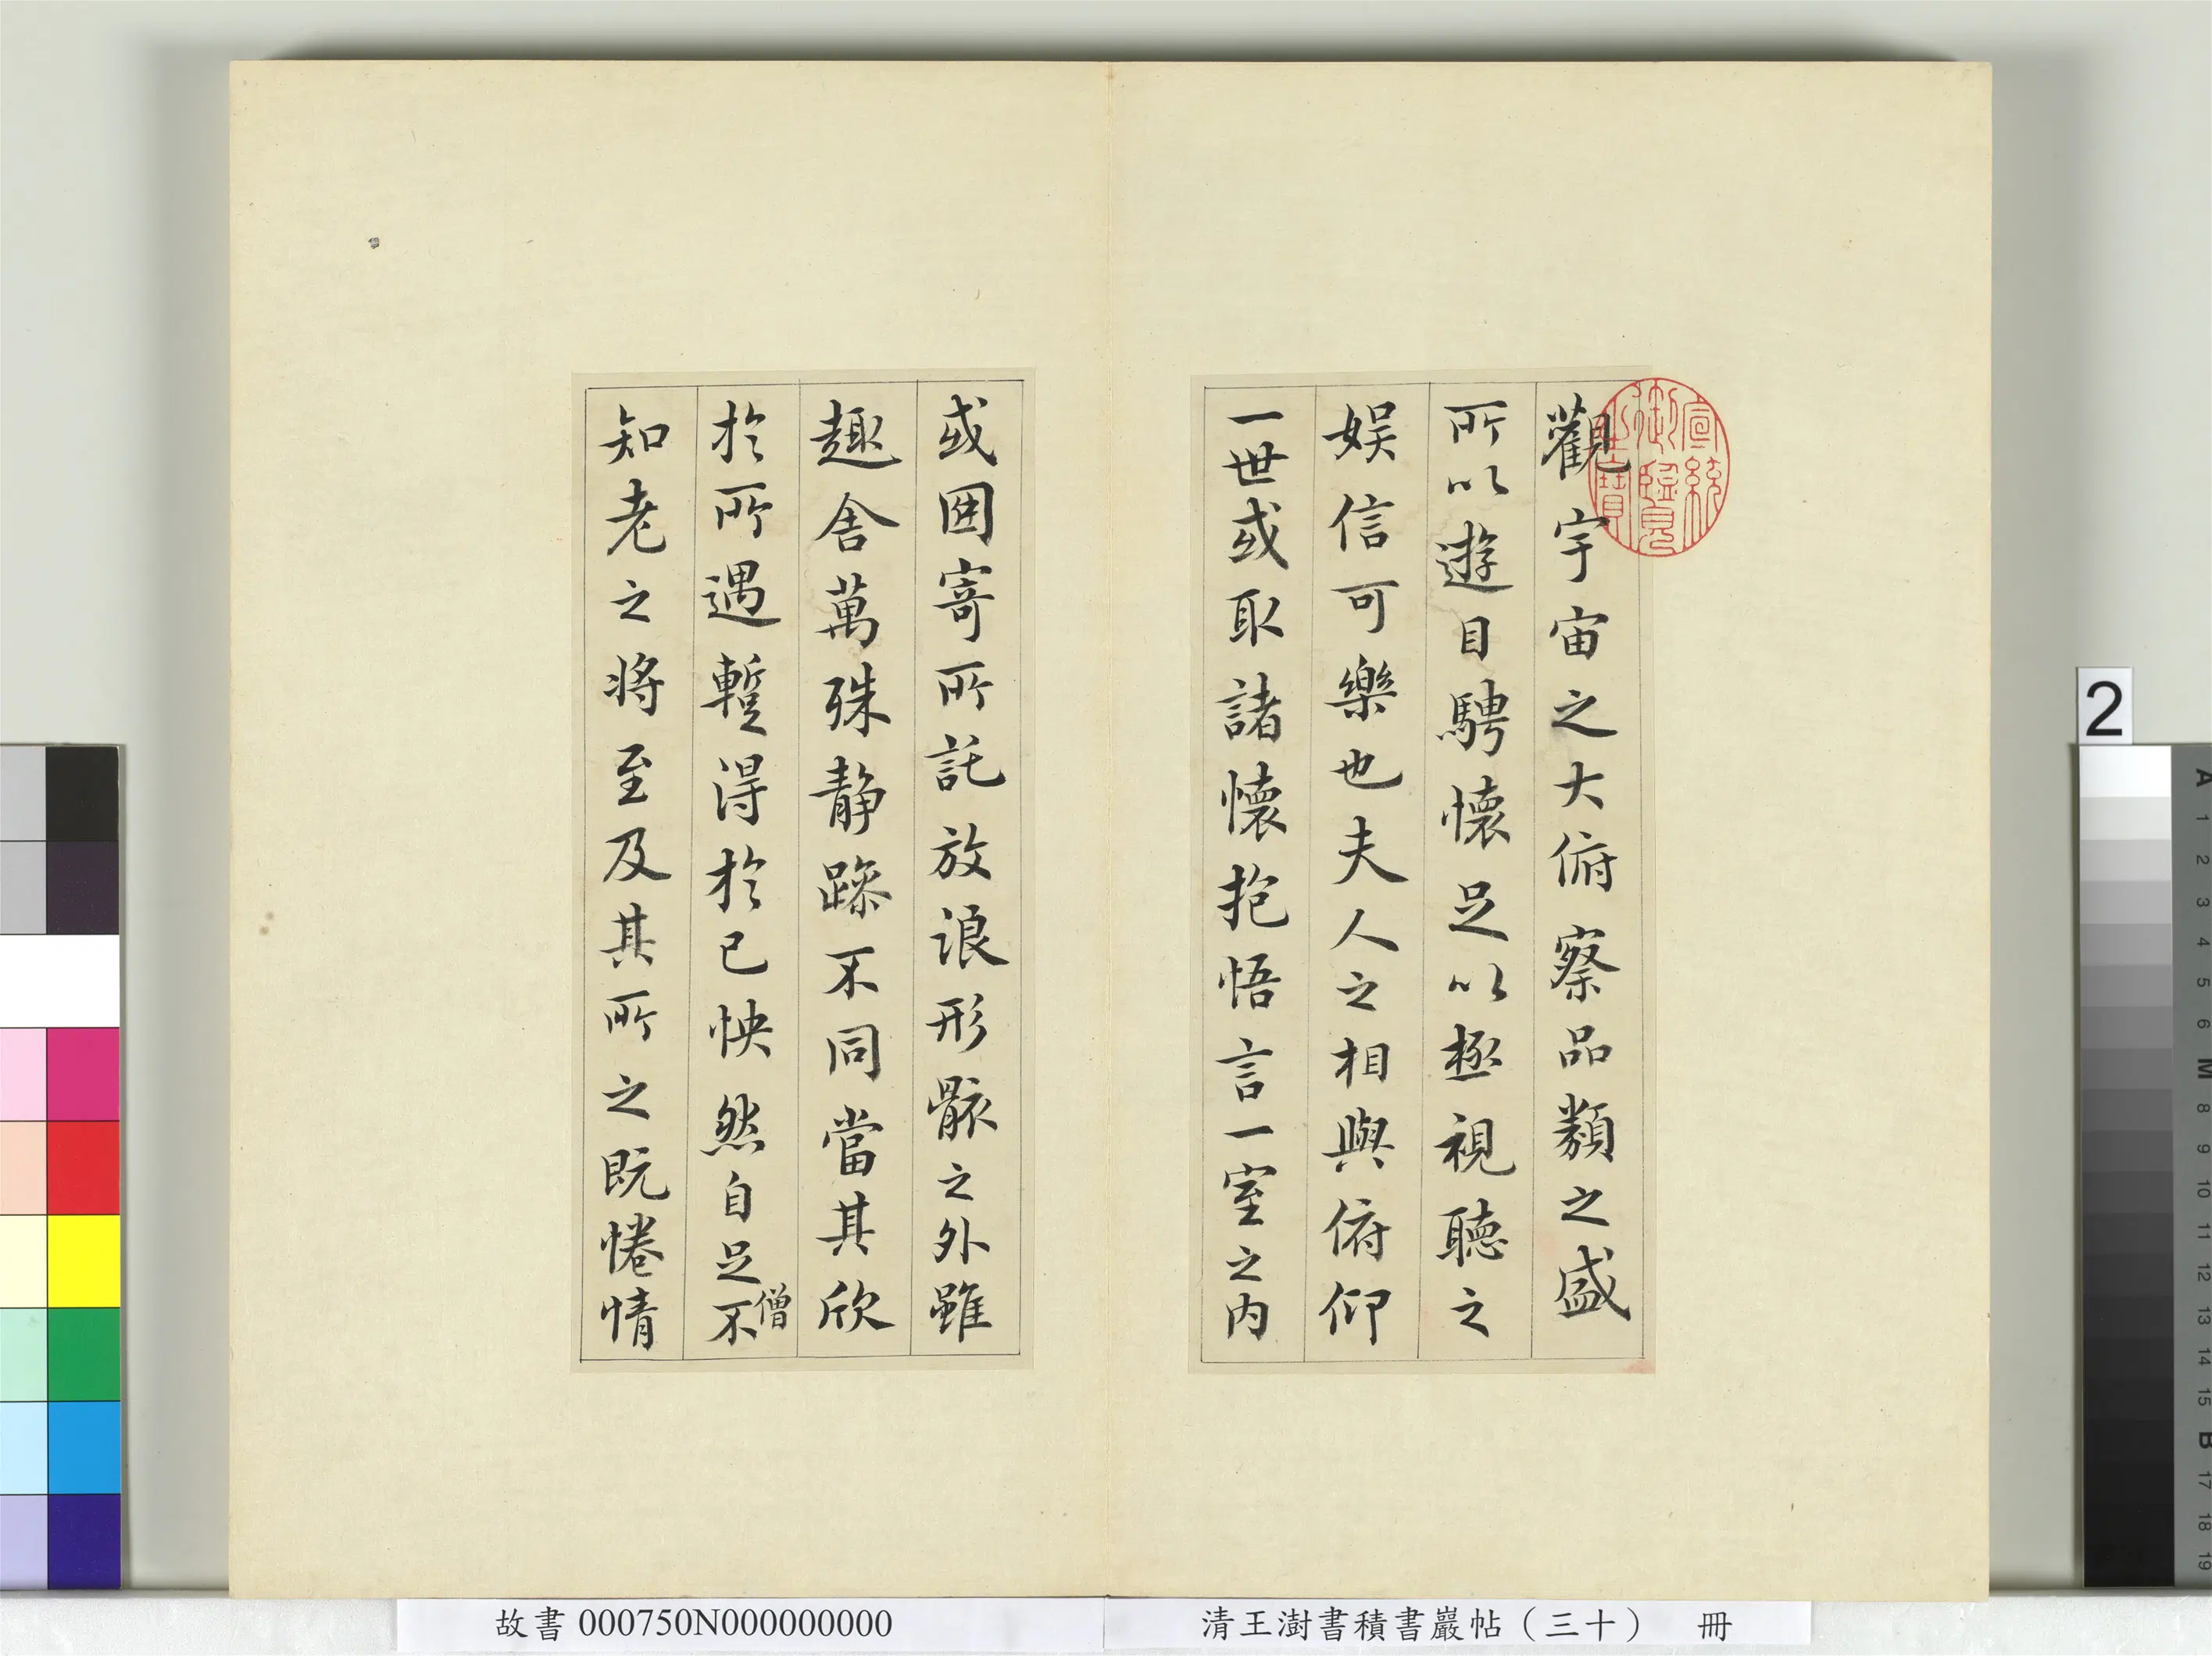 觀宇宙之大俯察品類之盛
所以遊目騁懷足以極視聽之
娱信可樂也夫人之相與俯仰
一世或取諸懷抱悟言一室之内
或因寄所託放浪形骸之外雖
趣舍萬殊静躁不同當其欣
於所遇暫得於己怏然自足不
僧
知老之将至及其所之既惓情
宣統御覽之寶
2
故書 000750N000000000
清王澍書積書巖帖（三十） 冊
A 1 2 3 4 5 6 M 8 9 10 11 12 13 14 15 B 17 18 19